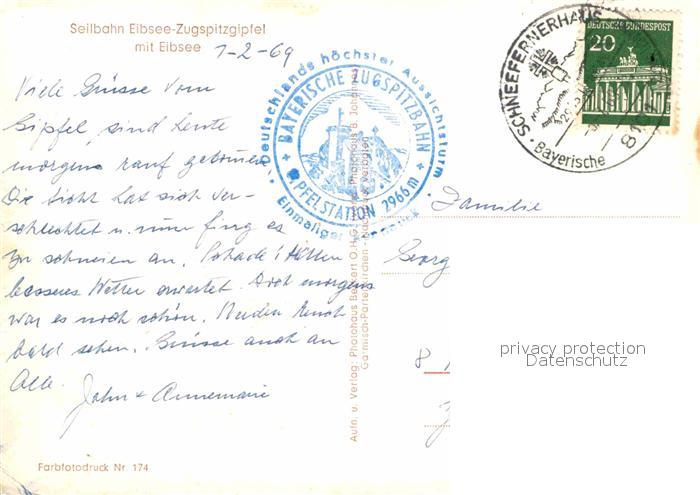 Seilbahn Eibsee-Zugspitzgipfel
mit Eibsee
1-2-69
Viele Grüsse vom
Gipfel, sind heute
morgens rauf gekommen
Die Sicht hat sich ver-
schlechtet u. nun fing es
zu schneien an. Schade! Hätten
besseres Wetter erwartet. Doch morgens
war es noch schön. Werden Euch
bald sehen. Grüsse auch an
Alle.
John + Annemarie
Farbfotodruck Nr. 174
Deutschlands höchster Aussichtsturm
BAYERISCHE ZUGSPITZBAHN
GIPFELSTATION 2966 m
Einmaliger
Aufn. u. Verlag: Photohaus Beckert O.H.G.
Photohaus B. Johannes
Garmisch-Partenkirchen
SCHNEEFERNERHAUS
Bayerische
DEUTSCHE BUNDESPOST
20
Familie
Georg
8
privacy protection
Datenschutz